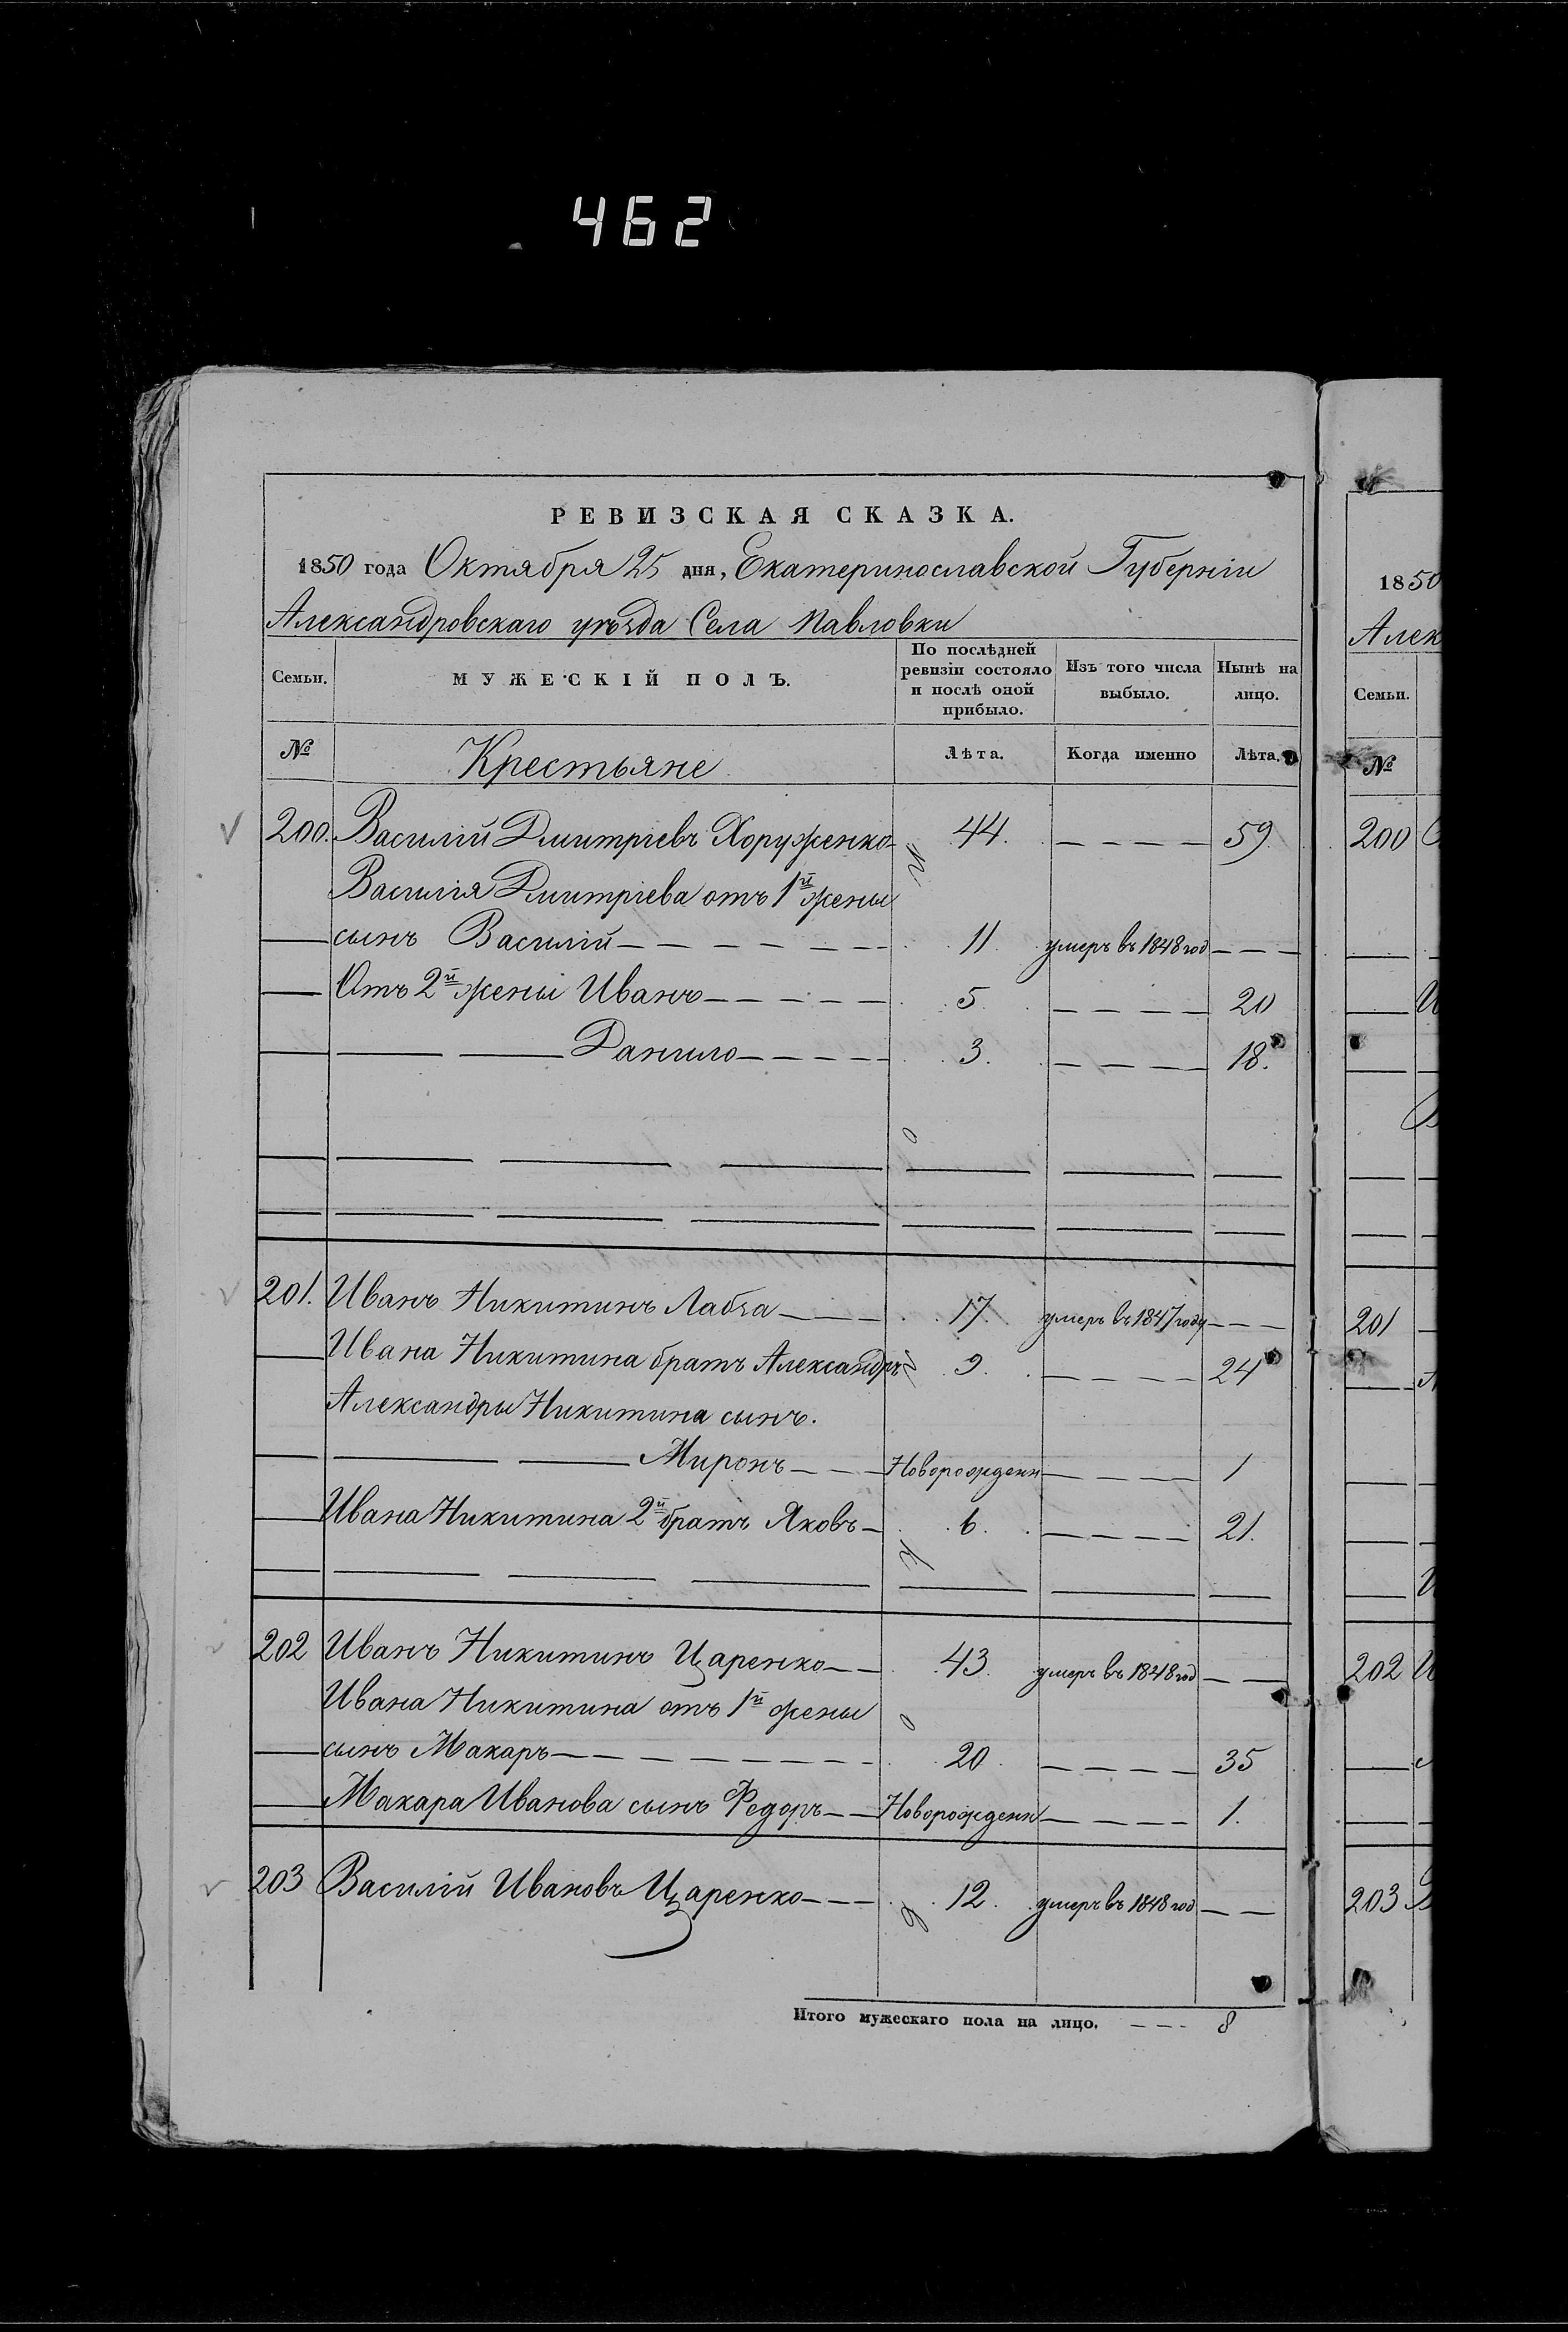 462
РЕВИЗСКАЯ СКАЗКА.
1850 года Октября 25 дня, Екатеринославской Губерніи
Александровскаго уѣзда Села Павловки
Семьи. МУЖЕСКІЙ ПОЛЪ. По послѣдней ревизіи состояло и послѣ оной прибыло. Изъ того числа выбыло. Нынѣ на лицо.
№ Крестьяне Лѣта. Когда именно Лѣта.
200. Василій Дмитріевъ Хоруженко 44. 59
Василія Дмитріева отъ 1й жены
сынъ Василій 11 умеръ въ 1848 год
Отъ 2й жены Иванъ 5 20
Данило 3. 18.
201. Иванъ Никитинъ Лабза 17. умеръ въ 1847 году
Ивана Никитина братъ Александръ 9. 24
Александры Никитина сынъ.
Миронъ Новорожденн 1
Ивана Никитина 2й братъ Яковъ 6. 21.
202 Иванъ Никитинъ Царенко 43. умеръ въ 1848 год
Ивана Никитина отъ 1й жены
сынъ Макаръ 20. 35
Макара Иванова сынъ Федоръ Новорожденн 1.
203 Василій Ивановъ Царенко 12. умеръ въ 1848 год
Итого мужескаго пола на лицо. 8
1850
Алек
Семьи.
№
200
201
202
203